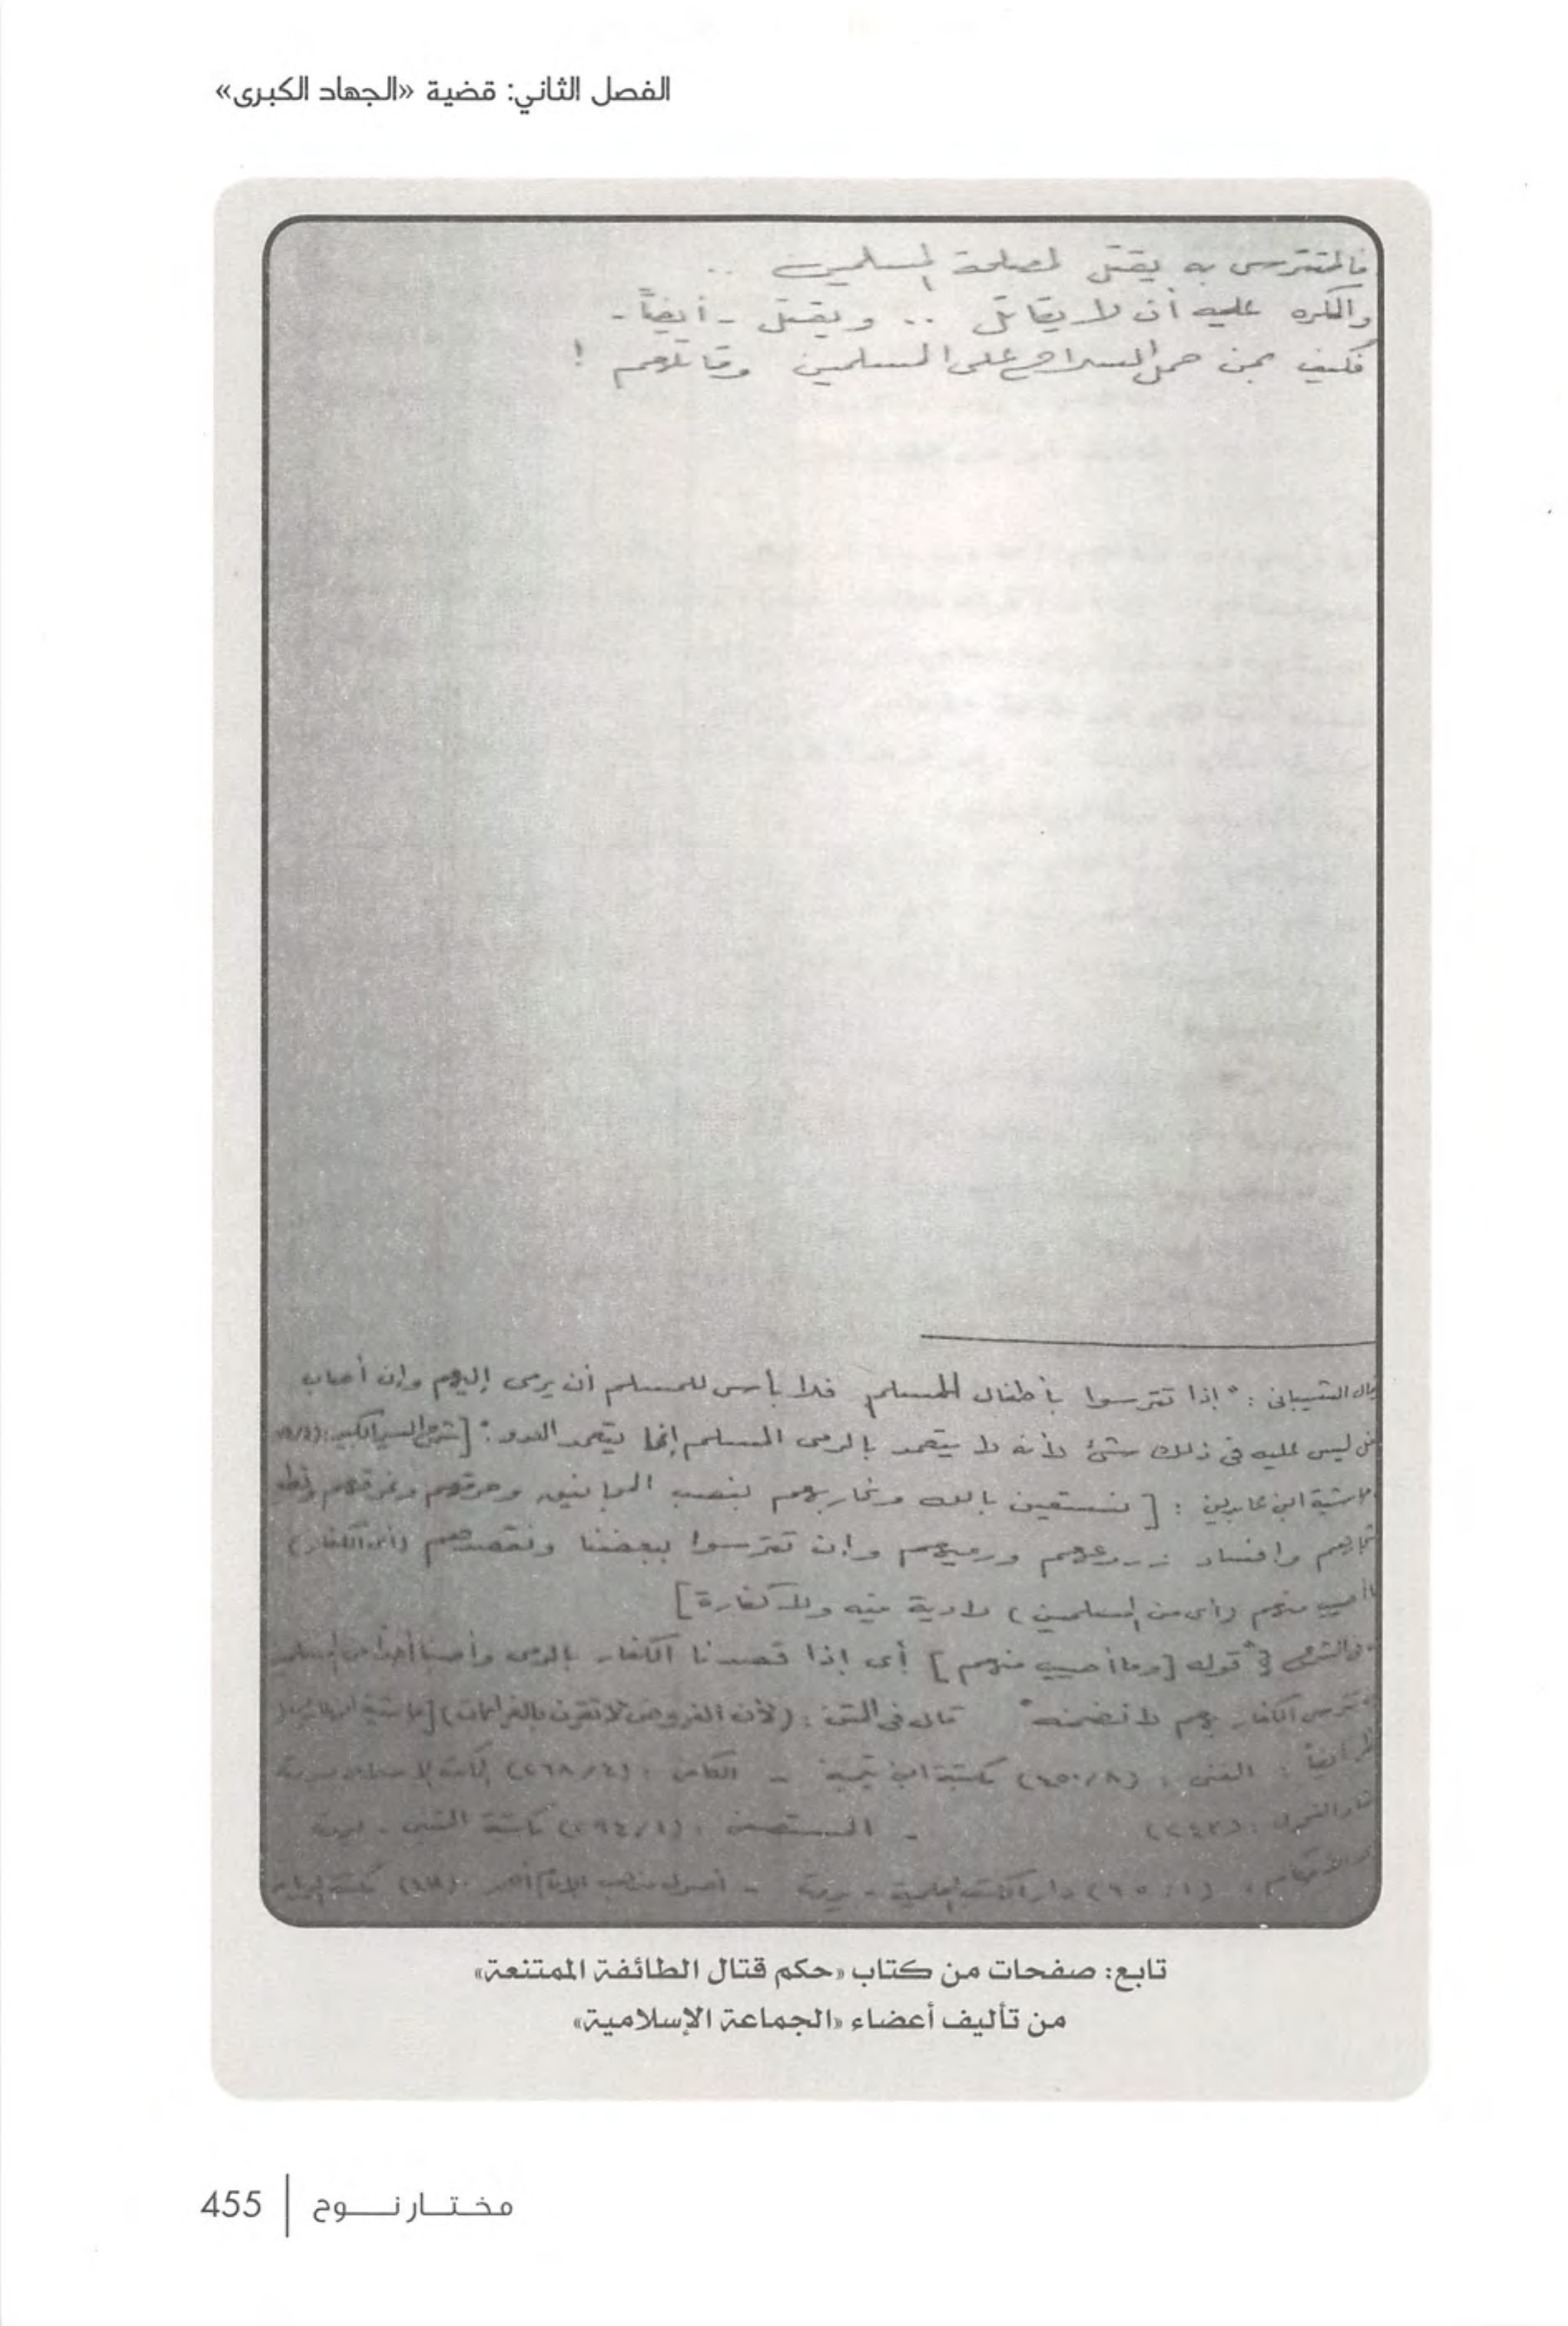 الفصل الثاني: قضية «الجهاد الكبرى»
فالمتترس به يقتل لمصلحة المسلمين ..
والمكره عليه أن لا يقاتل .. ويقتل - أيضاً -
فكيف بمن حمل السلاح على المسلمين وقاتلهم !
قال الشيبانى : " إذا تترسوا بأطفال المسلمين فلا بأس للمسلم أن يرمى إليهم وإن أصاب
ليس عليه فى ذلك شئ لأنه لا يتعمد بالرمى المسلم إنما يتعمد العدو " [ شرح السير الكبير :
حاشية ابن عابدين : [ نستعين بالله ونحاربهم بنصب المجانيق وحرقهم وغرقهم وقطع
أشجارهم وافساد زروعهم ورميهم وإن تترسوا ببعضنا ونقصدهم (أى الكفار)
ما أصيب منهم (أى من المسلمين) لا دية فيه ولا كفارة ]
قوله [ وما أصيب منهم ] أى إذا قصدنا الكفار بالرمى وأصبنا أحداً من المسلمين
تترس الكفار بهم لا نضمنه " قال فى : (لأن الفروض لا تقرن بالغرامات)
: (٨/٤٥٠) مكتبة ابن تيمية - :
(٢٤٣) - المستصفى : (١/٢٩٤) مكتبة
دار الكتب العلمية - بيروت - أصول مذهب الإمام أحمد
تابع: صفحات من كتاب «حكم قتال الطائفة الممتنعة»
من تأليف أعضاء «الجماعة الإسلامية»
455 | مختار نوح